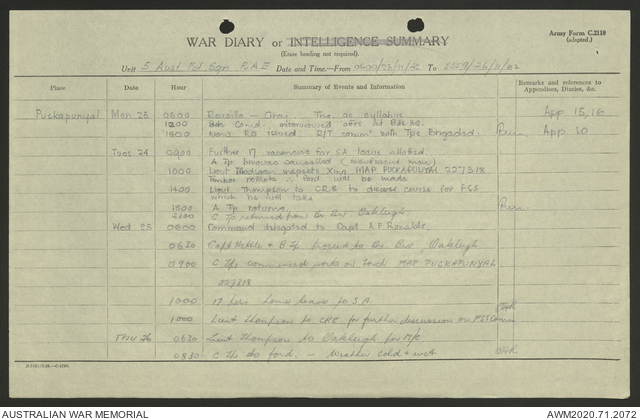 Army Form C.2118
(adapted.)
WAR DIARY or INTELLIGENCE SUMMARY
(Erase heading not required).
Unit 5 Aust Fd Sqn RAE Date and Time—From 0600/23/11/42 To 2359/26/11/42
Place Date Hour Summary of Events and Information Remarks and references to
Appendices, Diaries, &c.
Puckapunyal Mon 23 0600 Reveille — Tng. as syllabus App 15, 16
1200 Bde Comd. interviewed offrs at Bde HQ.
1500 New RO issued. R/T comm with Tps Brigaded. App 10
Tues 24 0900 Further 17 vacancies for SA leave allotted.
A Tp cancelled (insufficient
1000 Lieut Madigan inspects Xing MAP PUCKAPUNYAL 227318
Timber ford will be made
1400 Lieut. Thompson to CRE to discuss course for FSS
which he will take
1500 A Tp returns
2100 C Tp returned from Br Div. Oakleigh
Wed 25 0600 Command delegated to Capt. A.F. Ronalds.
0630 Capt & B Tp proceed to Br Div, Oakleigh
0900 C Tp commenced work on ford MAP PUCKAPUNYAL
227318
1000 17 pers home leave to S.A.
1000 Lieut Thompson to CRE for further discussion on FSS
Thu 26 0630 Lieut Thompson to Oakleigh for
0830 C Tp do ford. — Weather cold & wet
AUSTRALIAN WAR MEMORIAL
AWM2020.71.2072